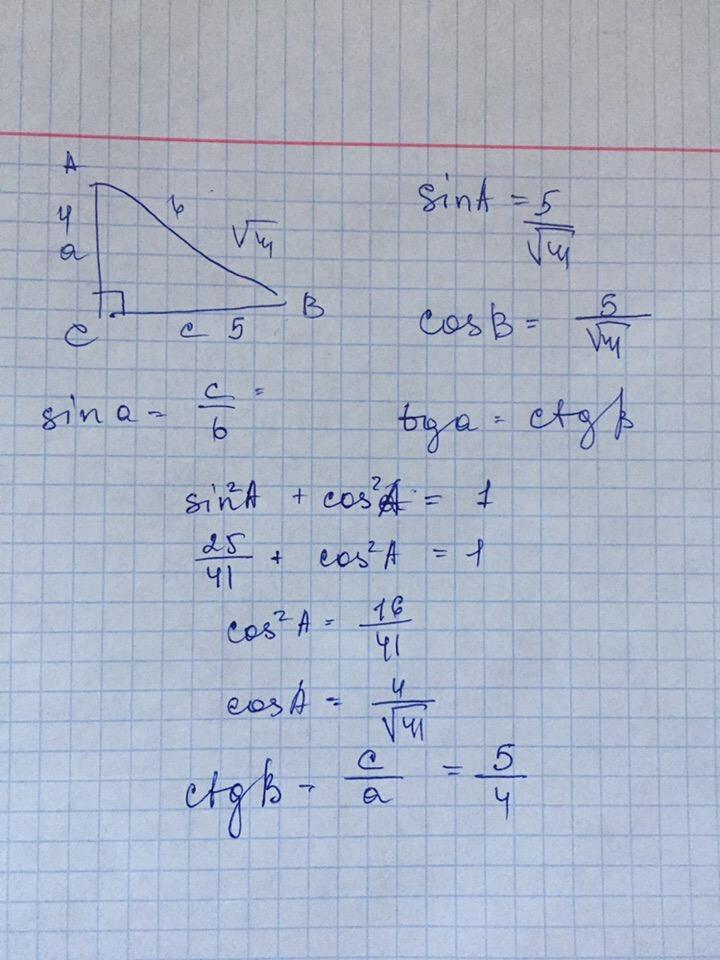 A
4
a
в
√41
C
c 5
B
sin A = 5/√41
cos B = 5/√41
sin a = c/в =
tg a = ctg β
sin²A + cos²A = 1
25/41 + cos²A = 1
cos²A = 16/41
cos A = 4/√41
ctg β = c/a = 5/4